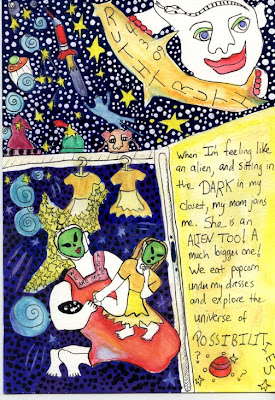 When I'm feeling like
an alien and sitting in
the DARK in my
closet, my mom joins
me. She is an
ALIEN TOO! A
much bigger one!
We eat popcorn
under my dresses
and explore the
universe of
POSSIBILITIES
? ?